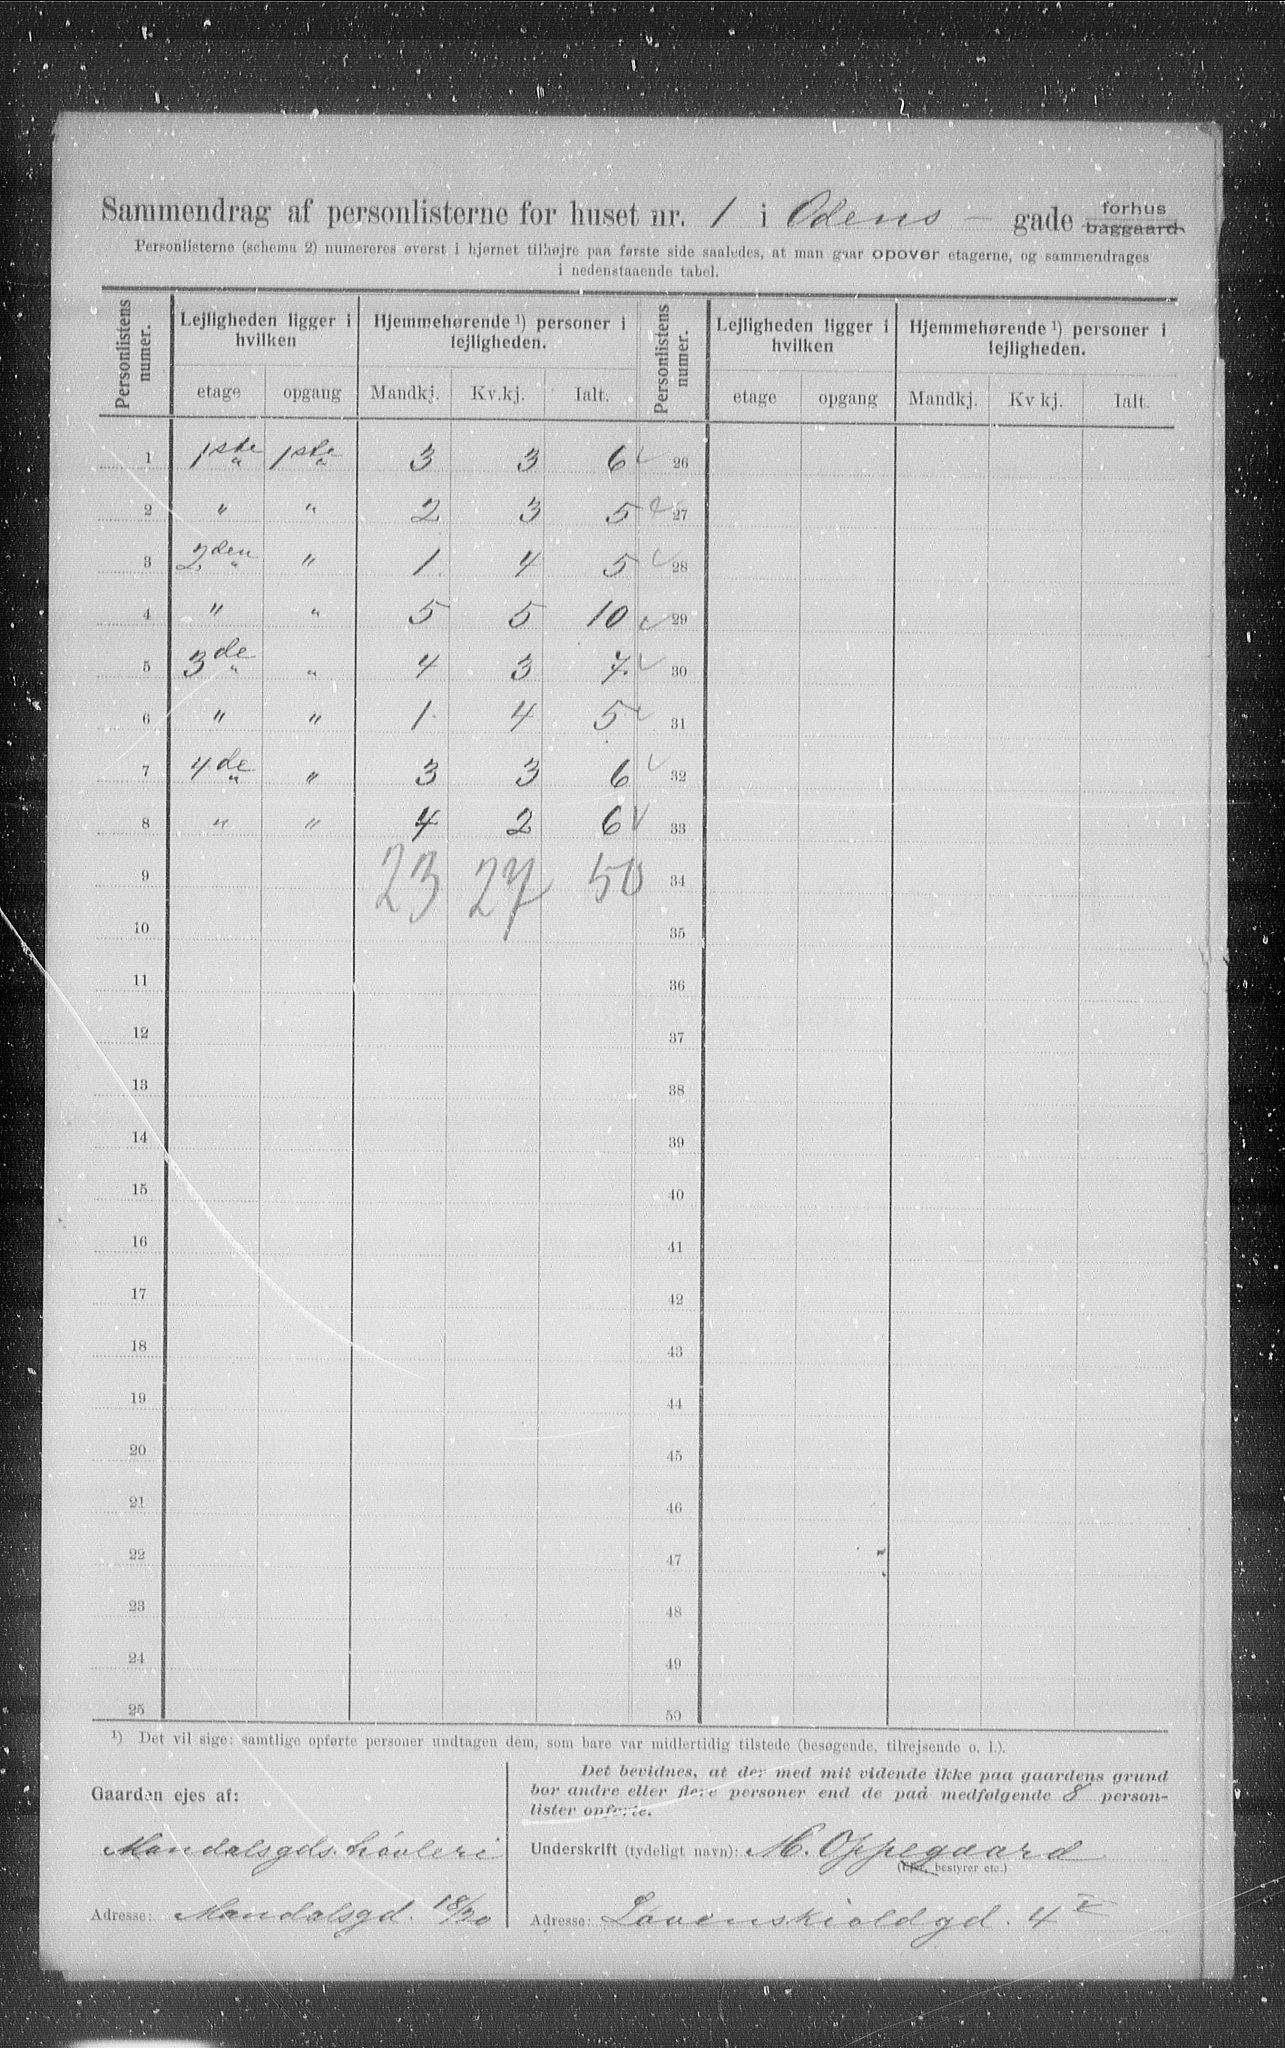 Sammendrag af personlisterne for huset nr. 1 i Odens - gade forhus baggaard
Personlisterne (schema 2) numereres øverst i hjørnet tilhøjre paa første side saaledes, at man gaar opover etagerne, og sammendrages
i nedenstaaende tabel.
Personlistens numer. Lejligheden ligger i hvilken Hjemmehørende ¹) personer i lejligheden. Personlistens numer. Lejligheden ligger i hvilken Hjemmehørende ¹) personer i lejligheden.
etage opgang Mandkj. Kv.kj. Ialt. etage opgang Mandkj. Kv kj. Ialt.
1 1ste " 1ste " 3 3 6 26
2 " " 2 3 5 27
3 2den " " 1. 4 5 28
4 " " 5 5 10 29
5 3de " " 4 3 7. 30
6 " " 1. 4 5 31
7 4de " " 3 3 6 32
8 " " 4 2 6 33
9 23 27 50 34
10 35
11 36
12 37
13 38
14 39
15 40
16 41
17 42
18 43
19 44
20 45
21 46
22 47
23 48
24 49
25 50
¹) Det vil sige: samtlige opførte personer undtagen dem, som bare var midlertidig tilstede (besøgende, tilrejsende o. l.).
Gaarden ejes af:
Mandalsgds. høvleri
Adresse: Mandalsgd. 18/20
Det bevidnes, at der med mit vidende ikke paa gaardens grund
bor andre eller flere personer end de paa medfølgende 8 person-
lister opførte.
Underskrift (tydeligt navn): M. Oppegaard
(Ejer, bestyrer etc.)
Adresse: Løvenskioldgd. 4 V